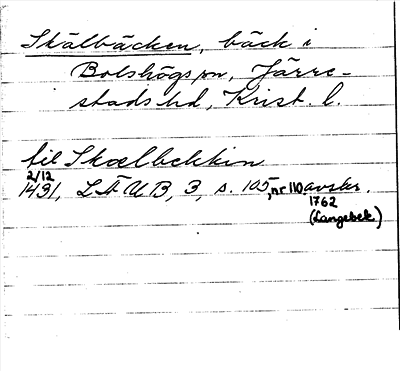 Skälbäcken, bäck i
Bolshögs sn, Järre-
stads hd, Krist. l.
til Skælbekkin
2/12
1431, LÄUB, 3, s. 105, nr 110 avskr.
1762
(Langebek)